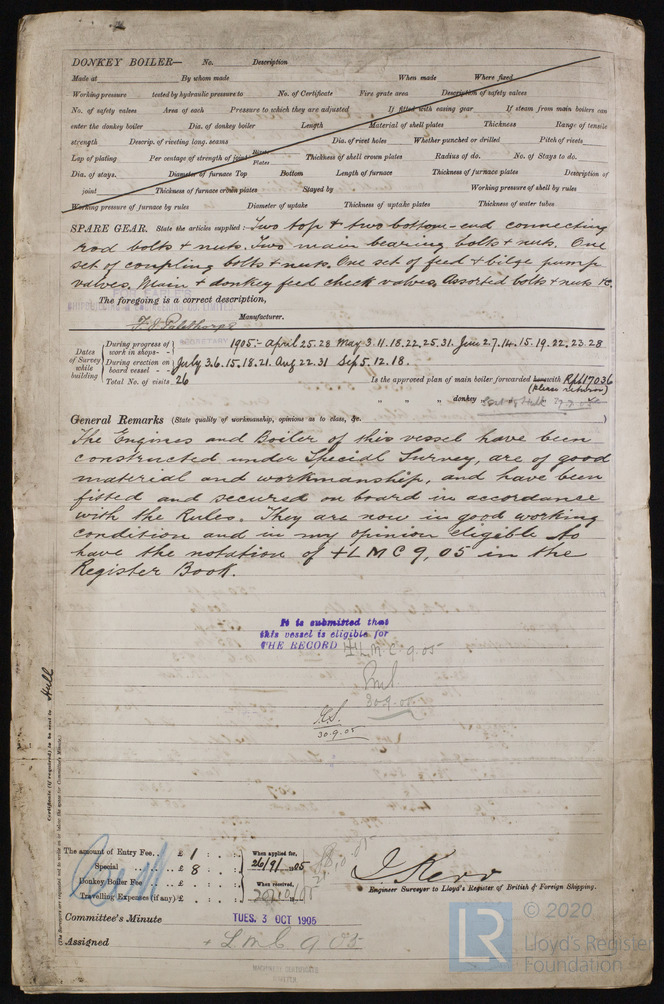 DONKEY BOILER— No. Description
Made at By whom made When made Where fixed
Working pressure tested by hydraulic pressure to No. of Certificate Fire grate area Description of safety valves
No. of safety valves Area of each Pressure to which they are adjusted If fitted with easing gear If steam from main boilers can
enter the donkey boiler Dia. of donkey boiler Length Material of shell plates Thickness Range of tensile
strength Descrip. of riveting long. seams Dia. of rivet holes Whether punched or drilled Pitch of rivets
Lap of plating Per centage of strength of joint Rivets Plates Thickness of shell crown plates Radius of do. No. of Stays to do.
Dia. of stays. Diameter of furnace Top Bottom Length of furnace Thickness of furnace plates Description of
joint Thickness of furnace crown plates Stayed by Working pressure of shell by rules
Working pressure of furnace by rules Diameter of uptake Thickness of uptake plates Thickness of water tubes
SPARE GEAR. State the articles supplied:— Two top & two bottom-end connecting
rod bolts & nuts. Two main bearing bolts & nuts. One
set of coupling bolts & nuts. One set of feed & bilge pump
valves. Main & donkey feed check valves, Assorted bolts & nuts &c.
The foregoing is a correct description,
Manufacturer.
Dates of Survey while building
During progress of work in shops - - 1905:- April 25. 28 May 3. 11. 18. 22. 25. 31. June 2. 7. 14. 15. 19. 22. 23. 28
During erection on board vessel - - July 3. 6. 15. 18. 21. Aug 22. 31 Sep 5. 12. 18.
Total No. of visits 26 Is the approved plan of main boiler forwarded with Rpt 17036
(please return)
" " " donkey
General Remarks (State quality of workmanship, opinions as to class, &c.
The Engines and Boiler of this vessel have been
constructed under Special Survey, are of good
material and workmanship, and have been
fitted and secured on board in accordance
with the Rules. They are now in good working
condition and in my opinion eligible to
have the notation of +LMC 9,05 in the
Register Book.
It is submitted that
this vessel is eligible for
THE RECORD +LMC 9.05
30.9.05
30.9.05
Certificate (if required) to be sent to Hull
The amount of Entry Fee.. £ 1 : : When applied for,
Special £ 8 : : 26/9/05
Donkey Boiler Fee £ : : When received,
Travelling Expenses (if any) £ : : 20/10/05
J Kerr
Engineer Surveyor to Lloyd's Register of British & Foreign Shipping.
Committee's Minute TUES. 3 OCT 1905
Assigned + LMC 9 05
© 2020
LR
Lloyd's Register
Foundation